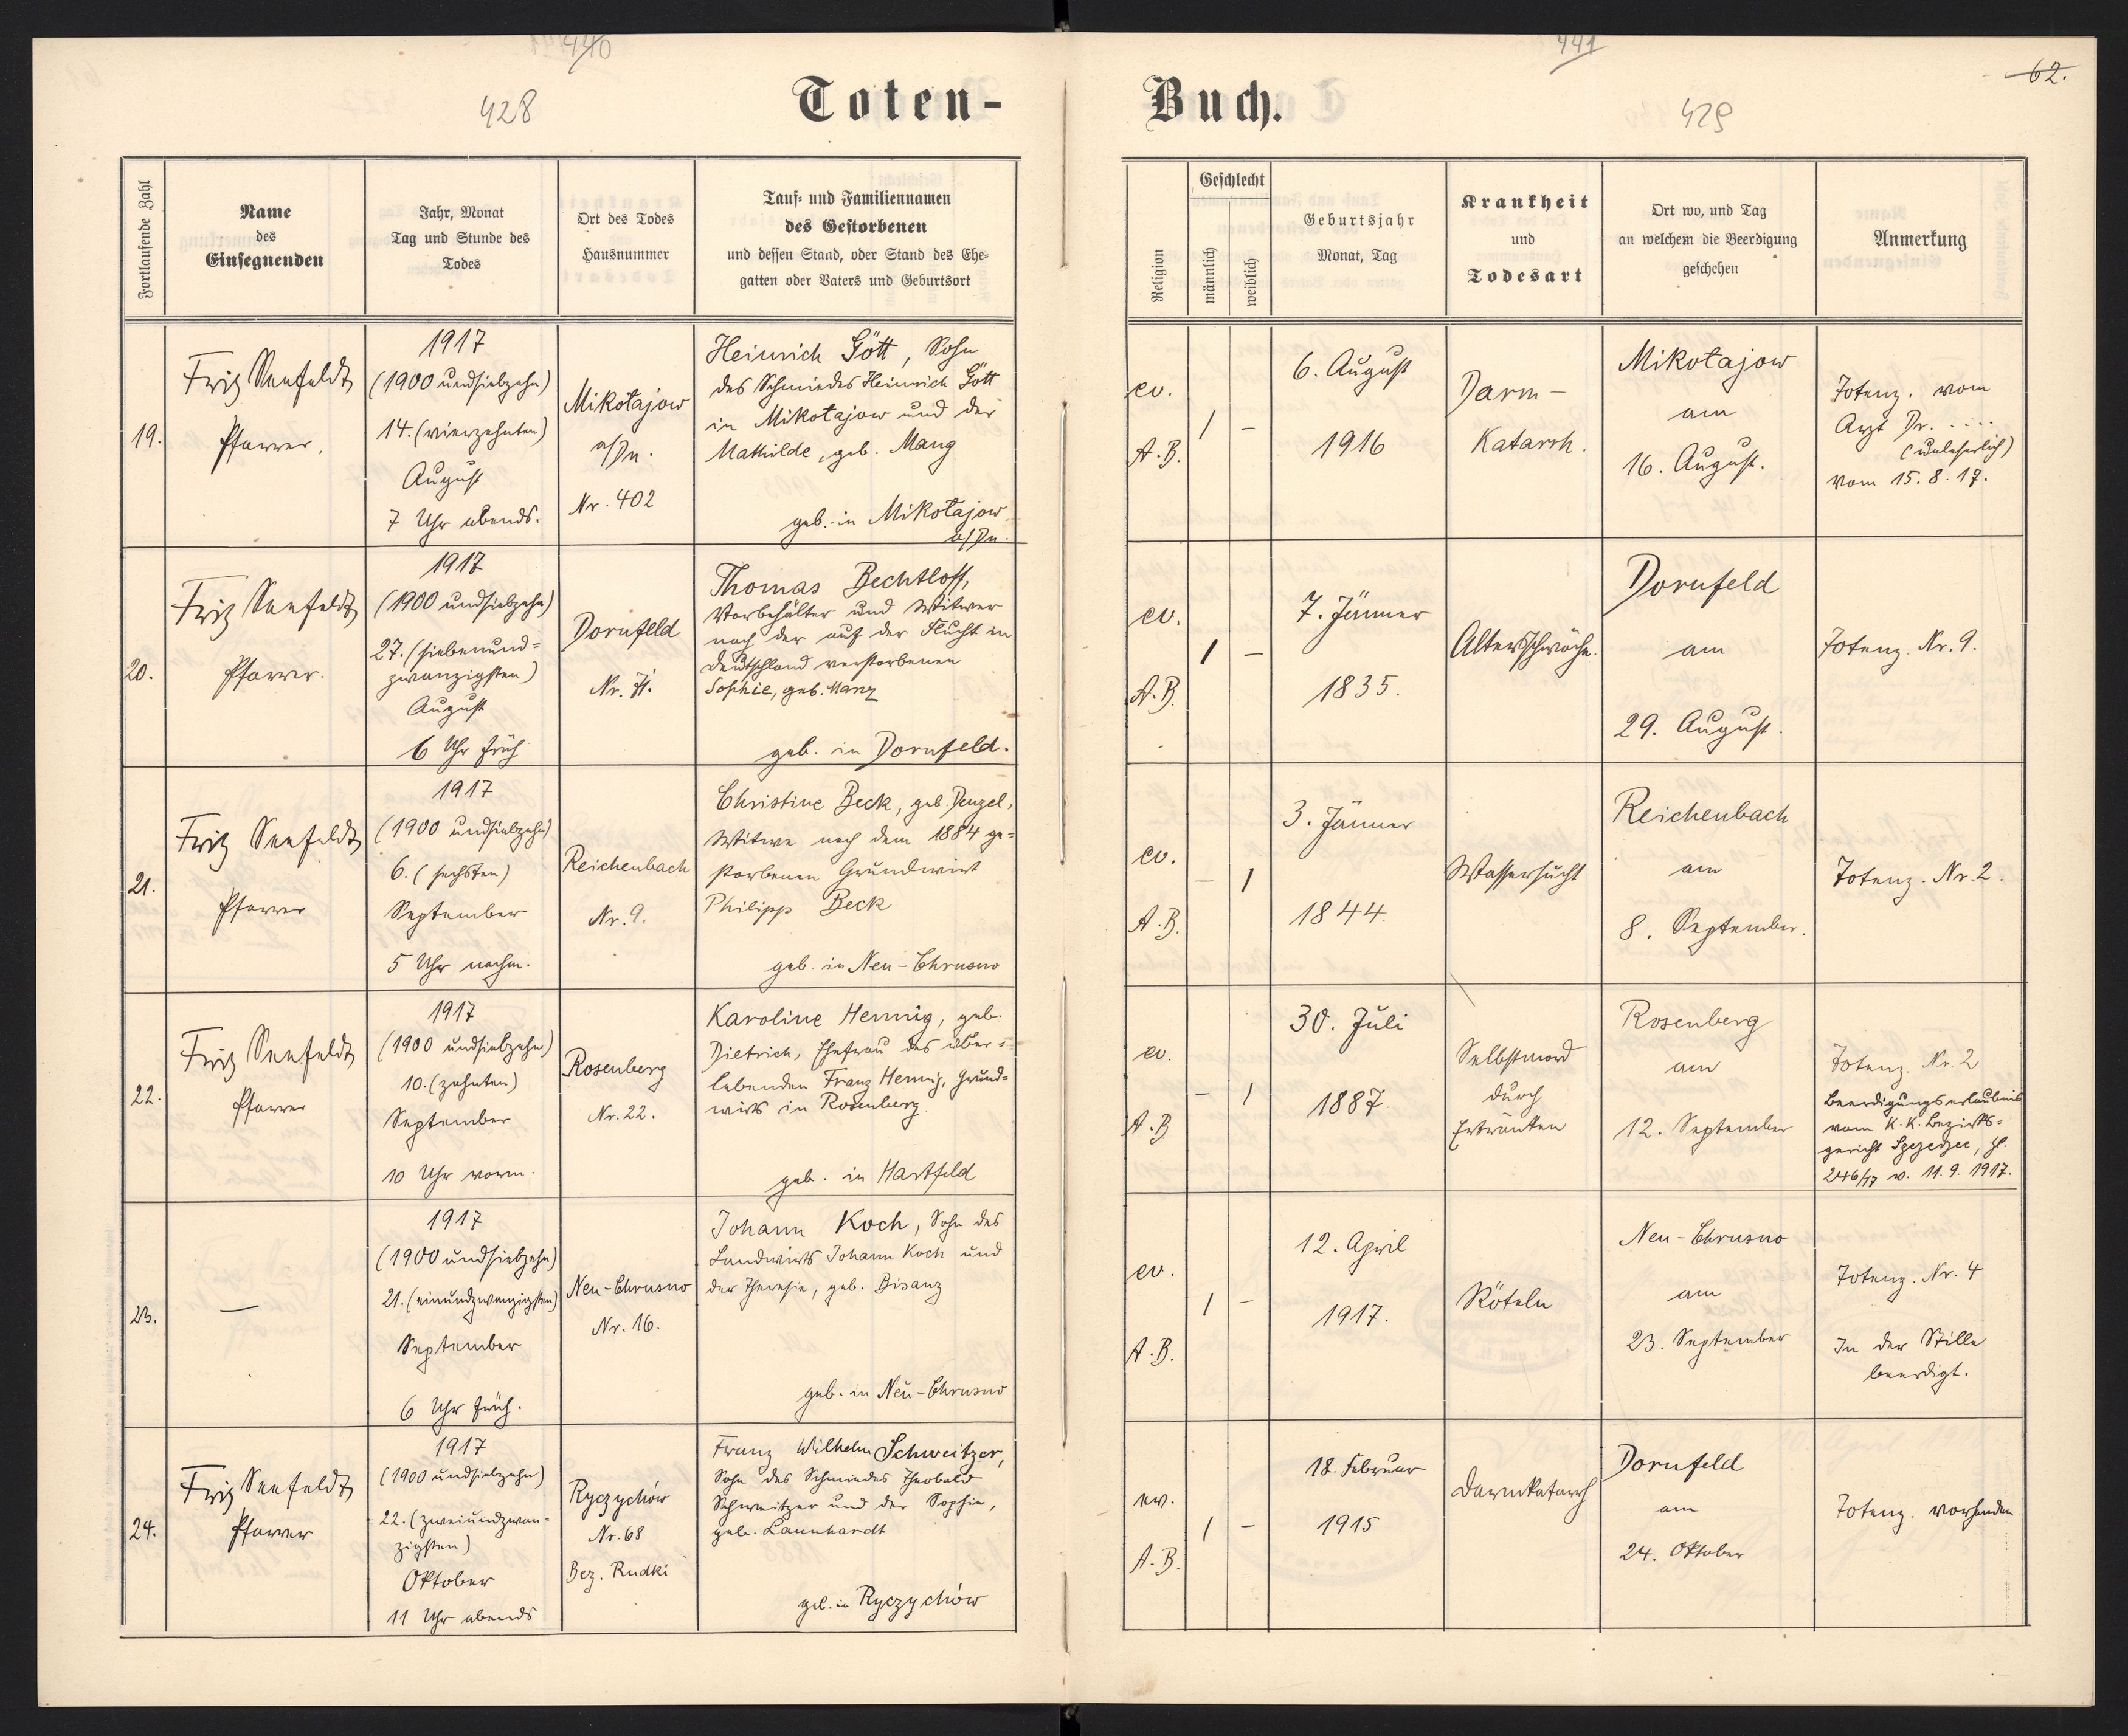 440
428
Toten-
Fortlaufende Zahl
Name
des
Einsegnenden
Jahr, Monat
Tag und Stunde des
Todes
Ort des Todes
Hausnummer
Tauf- und Familiennamen
des Gestorbenen
und dessen Stand, oder Stand des Ehe-
gatten oder Vaters und Geburtsort
19.
Fritz Seefeldt
Pfarrer.
1917
(1900 undsiebzehn)
14. (vierzehnten)
August
7 Uhr abends.
Mikołajow
a/Dn.
Nr. 402
Heinrich Gött, Sohn
des Schmiedes Heinrich Gött
in Mikołajow und der
Mathilde, geb. Mang
geb. in Mikołajow
a/Dn.
20.
Fritz Seefeldt
Pfarrer.
1917
(1900 undsiebzehn)
27. (siebenund=
zwanzigsten)
August
6 Uhr früh
Dornfeld
Nr. 71.
Thomas Bechtloff,
Vorbehälter und Witwer
nach der auf der Flucht in
Deutschland verstorbenen
Sophie, geb. Manz
geb. in Dornfeld.
21.
Fritz Seefeldt
Pfarrer
1917
(1900 undsiebzehn)
6. (sechsten)
September
5 Uhr nachm.
Reichenbach
Nr. 9.
Christine Beck, geb. Denzel,
Witwe nach dem 1884 ge=
storbenen Grundwirt
Philipp Beck
geb. in Neu-Chrusno
22.
Fritz Seefeldt
Pfarrer
1917
(1900 undsiebzehn)
10. (zehnten)
September
10 Uhr vorm.
Rosenberg
Nr. 22.
Karoline Hennig, geb.
Dietrich, Ehefrau des über=
lebenden Franz Hennig, Grund=
wirts in Rosenberg.
geb. in Hartfeld
23.
—
1917
(1900 undsiebzehn)
21. (einundzwanzigsten)
September
6 Uhr früh.
Neu-Chrusno
Nr. 16.
Johann Koch, Sohn des
Landwirts Johann Koch und
der Theresie, geb. Bisanz
geb. in Neu-Chrusno
24.
Fritz Seefeldt
Pfarrer
1917
(1900 undsiebzehn)
22. (zweiundzwan-
zigsten)
Oktober
11 Uhr abends
Ryczychów
Nr. 68
Bez. Rudki
Franz Wilhelm Schweitzer,
Sohn des Schmiedes Theobald
Schweitzer und der Sophie,
geb. Launhardt
geb. in Ryczychów
441
62.
429
Buch.
Religion
Geschlecht
männlich
weiblich
Geburtsjahr
Monat, Tag
Krankheit
und
Todesart
Ort wo, und Tag
an welchem die Beerdigung
geschehen
Anmerkung
ev.
A.B.
1 –
6. August
1916
Darm-
Katarrh.
Mikołajow
am
16. August.
Totenz. vom
Arzt Dr. ....
(unleserlich)
vom 15. 8. 17.
ev.
A.B.
1 –
7. Jänner
1835.
Altersschwäche.
Dornfeld
am
29. August.
Totenz. Nr. 9.
ev.
A.B.
– 1
3. Jänner
1844.
Wassersucht
Reichenbach
am
8. September.
Totenz. Nr. 2.
ev.
A.B.
– 1
30. Juli
1887.
Selbstmord
durch
Ertränken
Rosenberg
am
12. September
Totenz. Nr. 2
Beerdigungserlaubnis
vom K. K. Bezirks=
gericht Szczerzec, Zl.
246/17 v. 11. 9. 1917.
ev.
A.B.
1 –
12. April
1917.
Röteln
Neu-Chrusno
am
23. September
Totenz. Nr. 4
In der Stille
beerdigt.
ev.
A.B.
1 –
18. Februar
1915
Darmkatarrh
Dornfeld
am
24. Oktober
Totenz. vorhanden